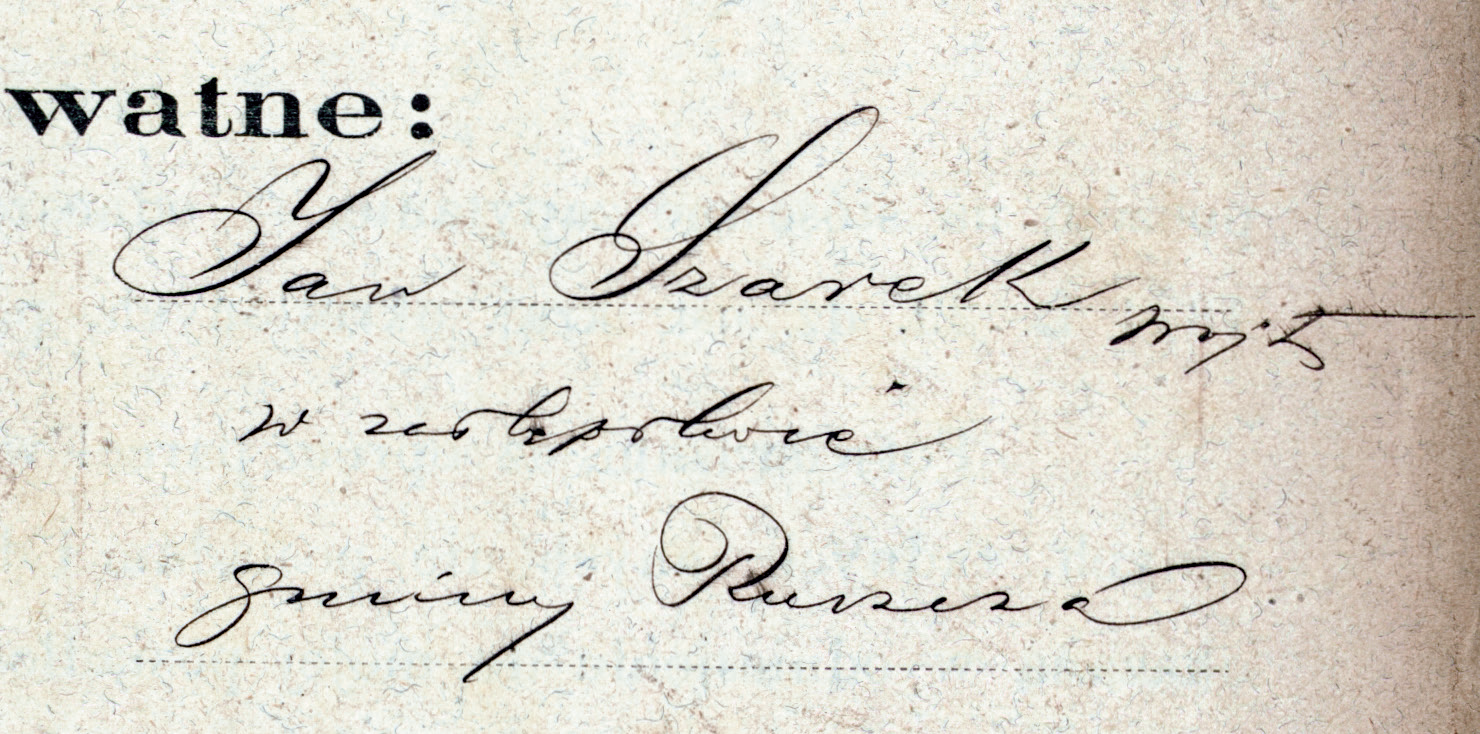 watne:
Jan Szarek wojt
w zastępstwie
gminy Ruszcza